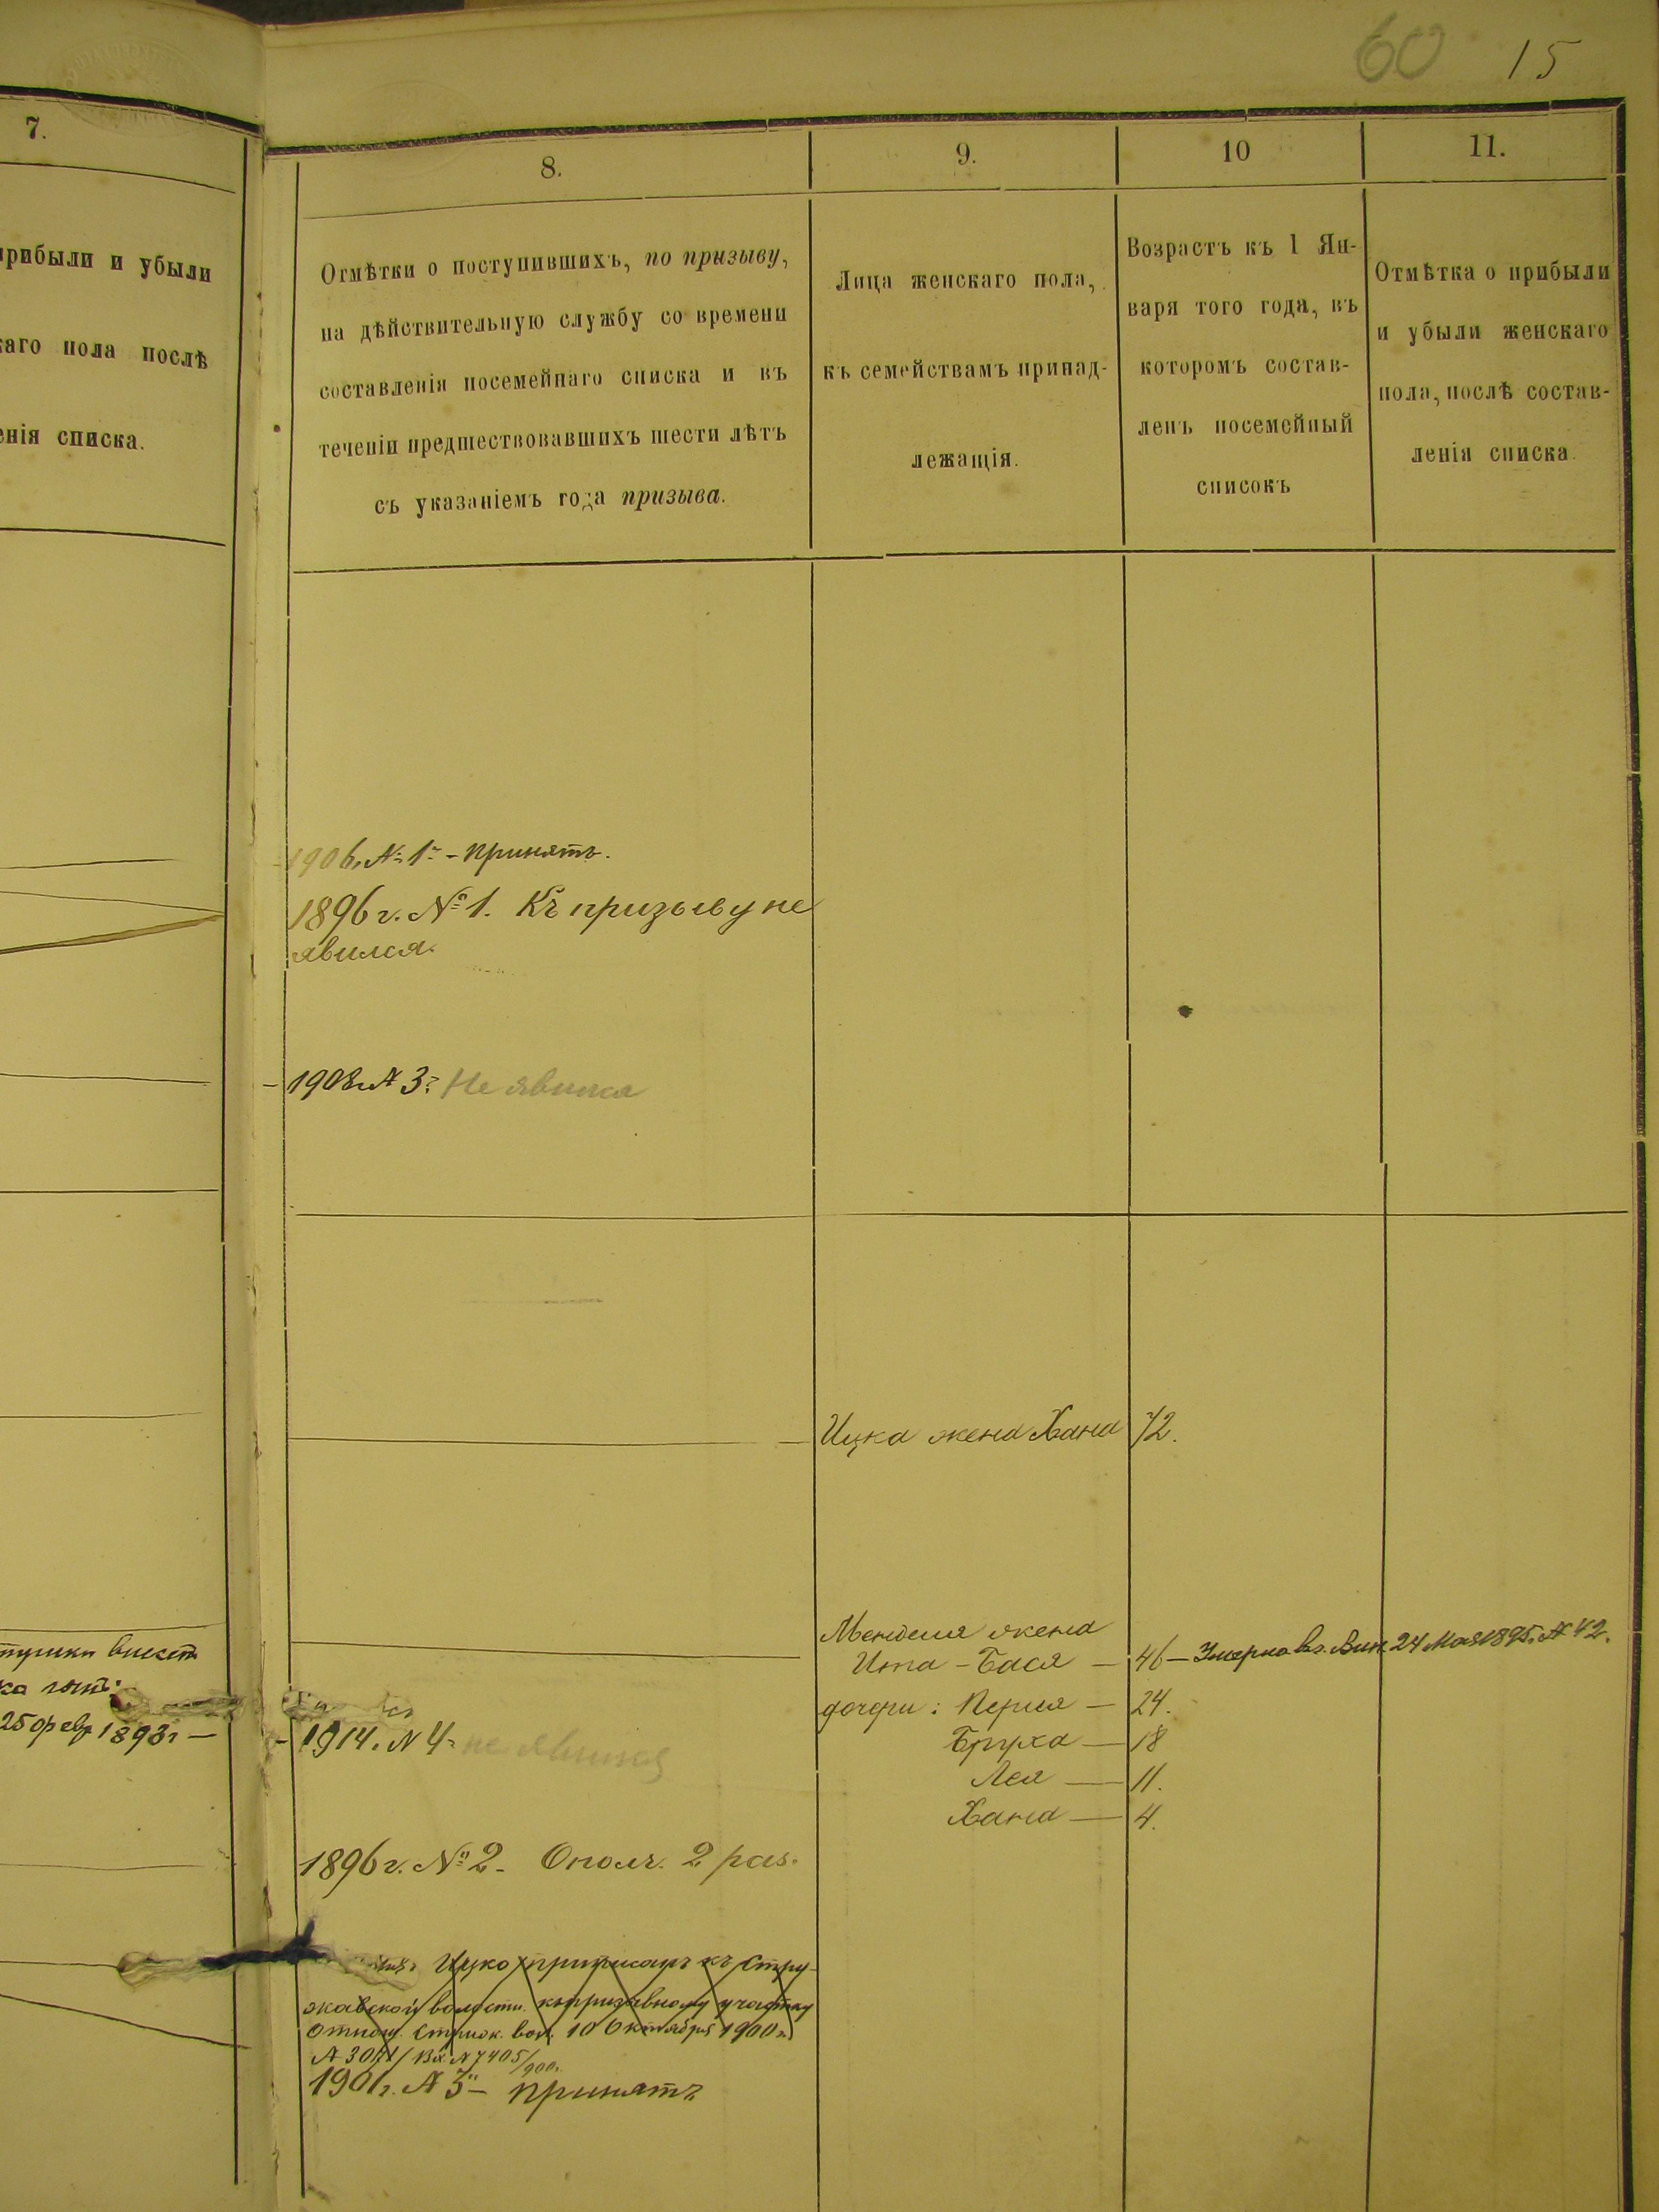 60 15
7.
8.
9.
10
11.
прибыли и убыли
каго пола послѣ
енія списка.
Отмѣтки о поступившихъ, по призыву,
на дѣйствительную службу со времени
составленія посемейнаго списка и въ
теченіи предшествовавшихъ шести лѣтъ
съ указаніемъ года призыва.
Лица женскаго пола,
къ семействамъ принад-
лежащія.
Возрастъ къ 1 Ян-
варя того года, въ
которомъ состав-
ленъ посемейный
списокъ
Отмѣтка о прибыли
и убыли женскаго
пола, послѣ состав-
ленія списка.
1906 г. № 1 - принятъ.
1896 г. № 1. Къ призыву не
явился.
1908 г. № 3 Не явился
Ицка жена Хана 72.
Менделя жена
Ита - Бася — 46 — Умерла въ 24 Мая 1895 г. № 42.
дочери: Перля — 24.
Бруха — 18
Лея — 11.
Хана — 4.
вмест
ка
25 февр 1893 г —
1914. № 4 не явился
1896 г. № 2 - Ополч. 2 раз.
Ицко приписанъ къ Стру-
жавской волости къ призывному участку
отнош. Стриж. вол. 10 Октября 1900 г.
№ / Вх. № 7405/900.
1901 г. № 3 — принятъ